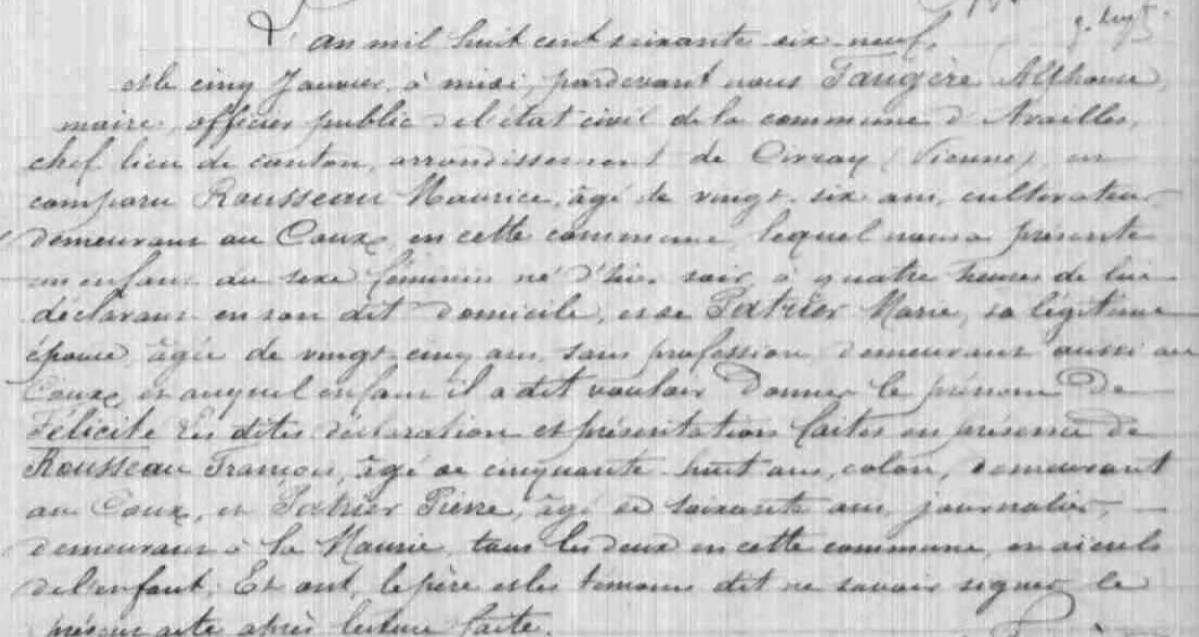 L'an mil huit cent soixante dix-neuf,
et le cinq Janvier, à midi, pardevant nous Faugère Alphonse,
maire, officier public de l'état civil de la commune d'Availles,
chef lieu de canton, arrondissement de Civray (Vienne), est
comparu Rousseau Maurice, âgé de vingt-six ans, cultivateur
demeurant au Coux, en cette commune, lequel nous a présenté
un enfant du sexe féminin né d'hier soir à quatre heures de lui
déclarant en son dit domicile, et de Patrier Marie, sa légitime
épouse, âgée de vingt-cinq ans, sans profession, demeurant aussi au
Coux, et auquel enfant il a dit vouloir donner le prénom de
Félicité Les dites déclaration et présentation faites en présence de
Rousseau François, âgé de cinquante-huit ans, colon, demeurant
au Coux, et Patrier Pierre, âgé de soixante ans, journalier,
demeurant à la, tous les deux en cette commune, et aïeuls
de l'enfant. Et ont, le père et les témoins dit ne savoir signer le
présent acte après lecture faite.